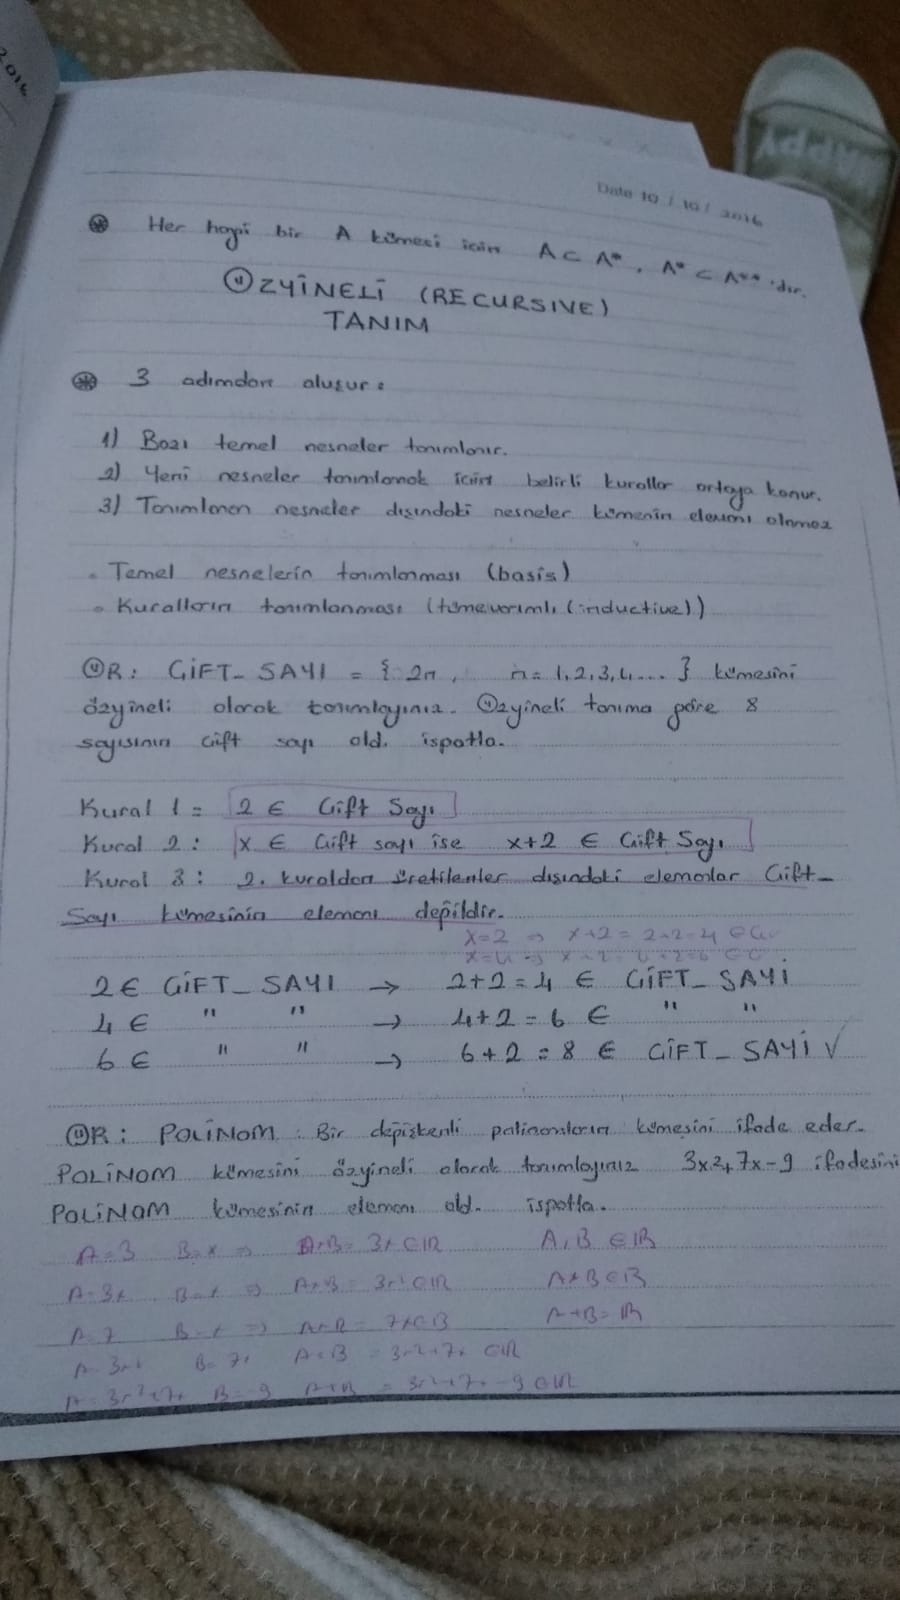 2016
HAPPY
Date 10 / 10 / 2016
⊛ Her hangi bir A kümesi için A ⊂ A*, A* ⊂ A** 'dır.
ÖZYİNELİ (RECURSIVE)
TANIM
⊛ 3 adımdan oluşur :
1) Bazı temel nesneler tanımlanır.
2) Yeni nesneler tanımlamak için belirli kurallar ortaya konur.
3) Tanımlanan nesneler dışındaki nesneler kümenin elemanı olamaz
• Temel nesnelerin tanımlanması (basis)
• Kuralların tanımlanması (tümevarımlı (inductive))
ÖR : ÇİFT_SAYI = { 2n , n = 1,2,3,4.... } kümesini
özyineli olarak tanımlayınız. Özyineli tanıma göre 8
sayısının çift sayı old. ispatla.
Kural 1 = 2 ∈ Çift Sayı
Kural 2 : x ∈ Çift sayı ise x+2 ∈ Çift Sayı
Kural 3 : 2. kuraldan üretilenler dışındaki elemanlar Çift_
Sayı kümesinin elemanı değildir.
x=2 ⇒ x+2 = 2+2=4 ∈
x=4 ⇒ x+2 = 4+2=6 ∈
2 ∈ ÇİFT_SAYI → 2+2=4 ∈ ÇİFT_SAYI
4 ∈ " " → 4+2=6 ∈ " "
6 ∈ " " → 6+2=8 ∈ ÇİFT_SAYI √
ÖR : POLİNOM : Bir değişkenli polinomların kümesini ifade eder.
POLİNOM kümesini özyineli olarak tanımlayınız 3x²+7x-9 ifadesini
POLİNOM kümesinin elemanı old. ispatla.
A=3 B=x ⇒ A*B = 3x ∈ IR A,B ∈ IR
A=3x B=x ⇒ A*B = 3x² ∈ IR A*B ∈ IR
A=7 B=x ⇒ A*B = 7x ∈ IR A+B = IR
A=3x² B=7x A+B = 3x²+7x ∈ IR
A=3x²+7x B=-9 A+B = 3x²+7x-9 ∈ IR